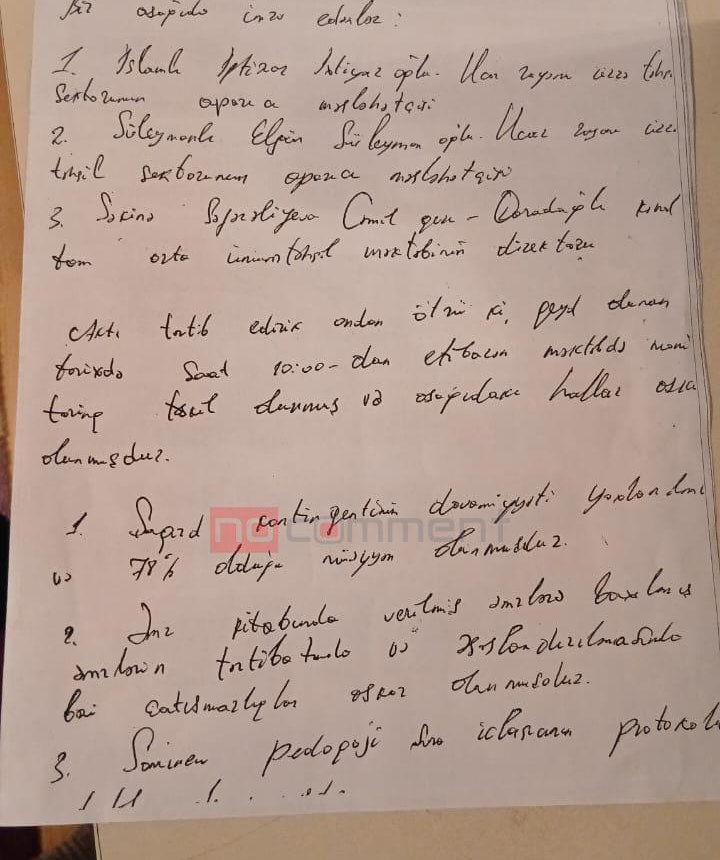 Biz aşağıda imza edənlər:
1. İslamlı İftixar İxtiyar oğlu. Ucar rayon üzrə təhsil
Sektorunun aparıcı məsləhətçisi
2. Süleymanlı Elçin Süleyman oğlu. Ucar rayon üzrə
təhsil sektorunun aparıcı məsləhətçisi
3. Səkinə Səfərəliyeva Cəmil qızı - Qaradağlı kənd
tam orta ümumtəhsil məktəbinin direktoru
Aktı tərtib edirik ondan ötrü ki, qeyd olunan
tarixdə saat 10:00-dan etibarən məktəbdə moni
torinq təşkil olunmuş və aşağıdakı hallar aşkar
olunmuşdur.
1. Şagird kontingentinin davamiyyəti yoxlanılmış
və 78% olduğu müəyyən olunmuşdur.
no comment
2. Əmr kitabında verilmiş əmrlərə baxılmış
əmrlərin tərtibatında və rəsmiləşdirilməsində
bəzi çatışmazlıqlar aşkar olunmuşdur.
3. pedaqoji şura iclasının protokol